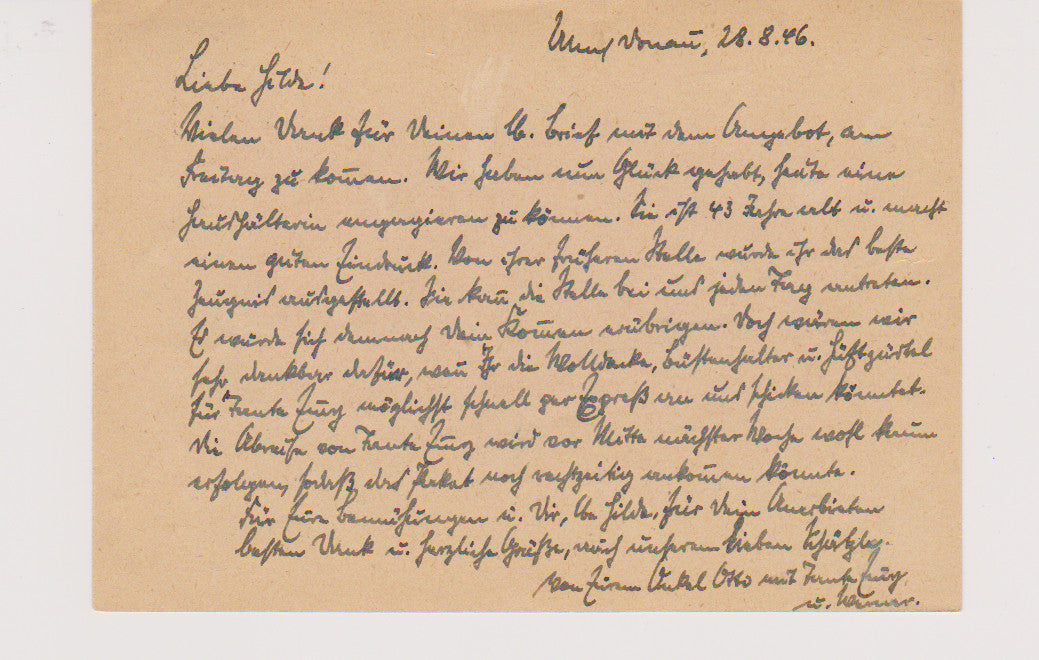 Ulm/Donau, 28.8.46.
Liebe Hilde!
Vielen Dank für Deinen lb. Brief mit dem Angebot, am
Freitag zu kom̅en. Wir haben nun Glück gehabt, heute eine
Haushälterin engagieren zu können. Sie ist 43 Jahre alt u. macht
einen guten Eindruck. Von ihrer früheren Stelle wurde ihr das beste
Zeugnis ausgestellt. Sie kan̅ die Stelle bei uns jeden Tag antreten.
Es würde sich demnach Dein Kom̅en erübrigen. Doch wären wir
sehr dankbar dafür, wen̅ Ihr die Wolldecke, Büstenhalter u. Hüftgürtel
für Tante möglichst schnell per Expreß an uns schicken könntet.
Die Abreise von Tante wird vor Mitte nächster Woche wohl kaum
erfolgen, sodaß das Paket noch rechtzeitig ankom̅en könnte.
Für Eure Bemühungen u. Dir, lb. Hilde, für Dein Anerbieten
besten Dank u. herzliche Grüße, auch unserem lieben
von Eurem Onkel Otto mit Tante
u. Werner.